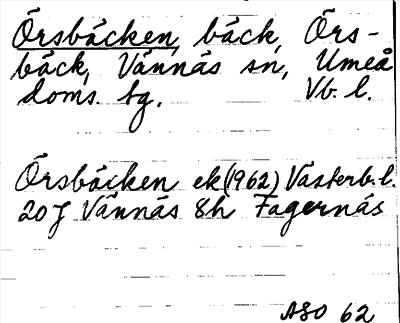 Örsbäcken, bäck, Örs-
bäck, Vännäs sn, Umeå
doms. tg. Vb. l.
Örsbäcken ek (1962) Västerb. l.
20J Vännäs 8h Fagernäs
ASO 62